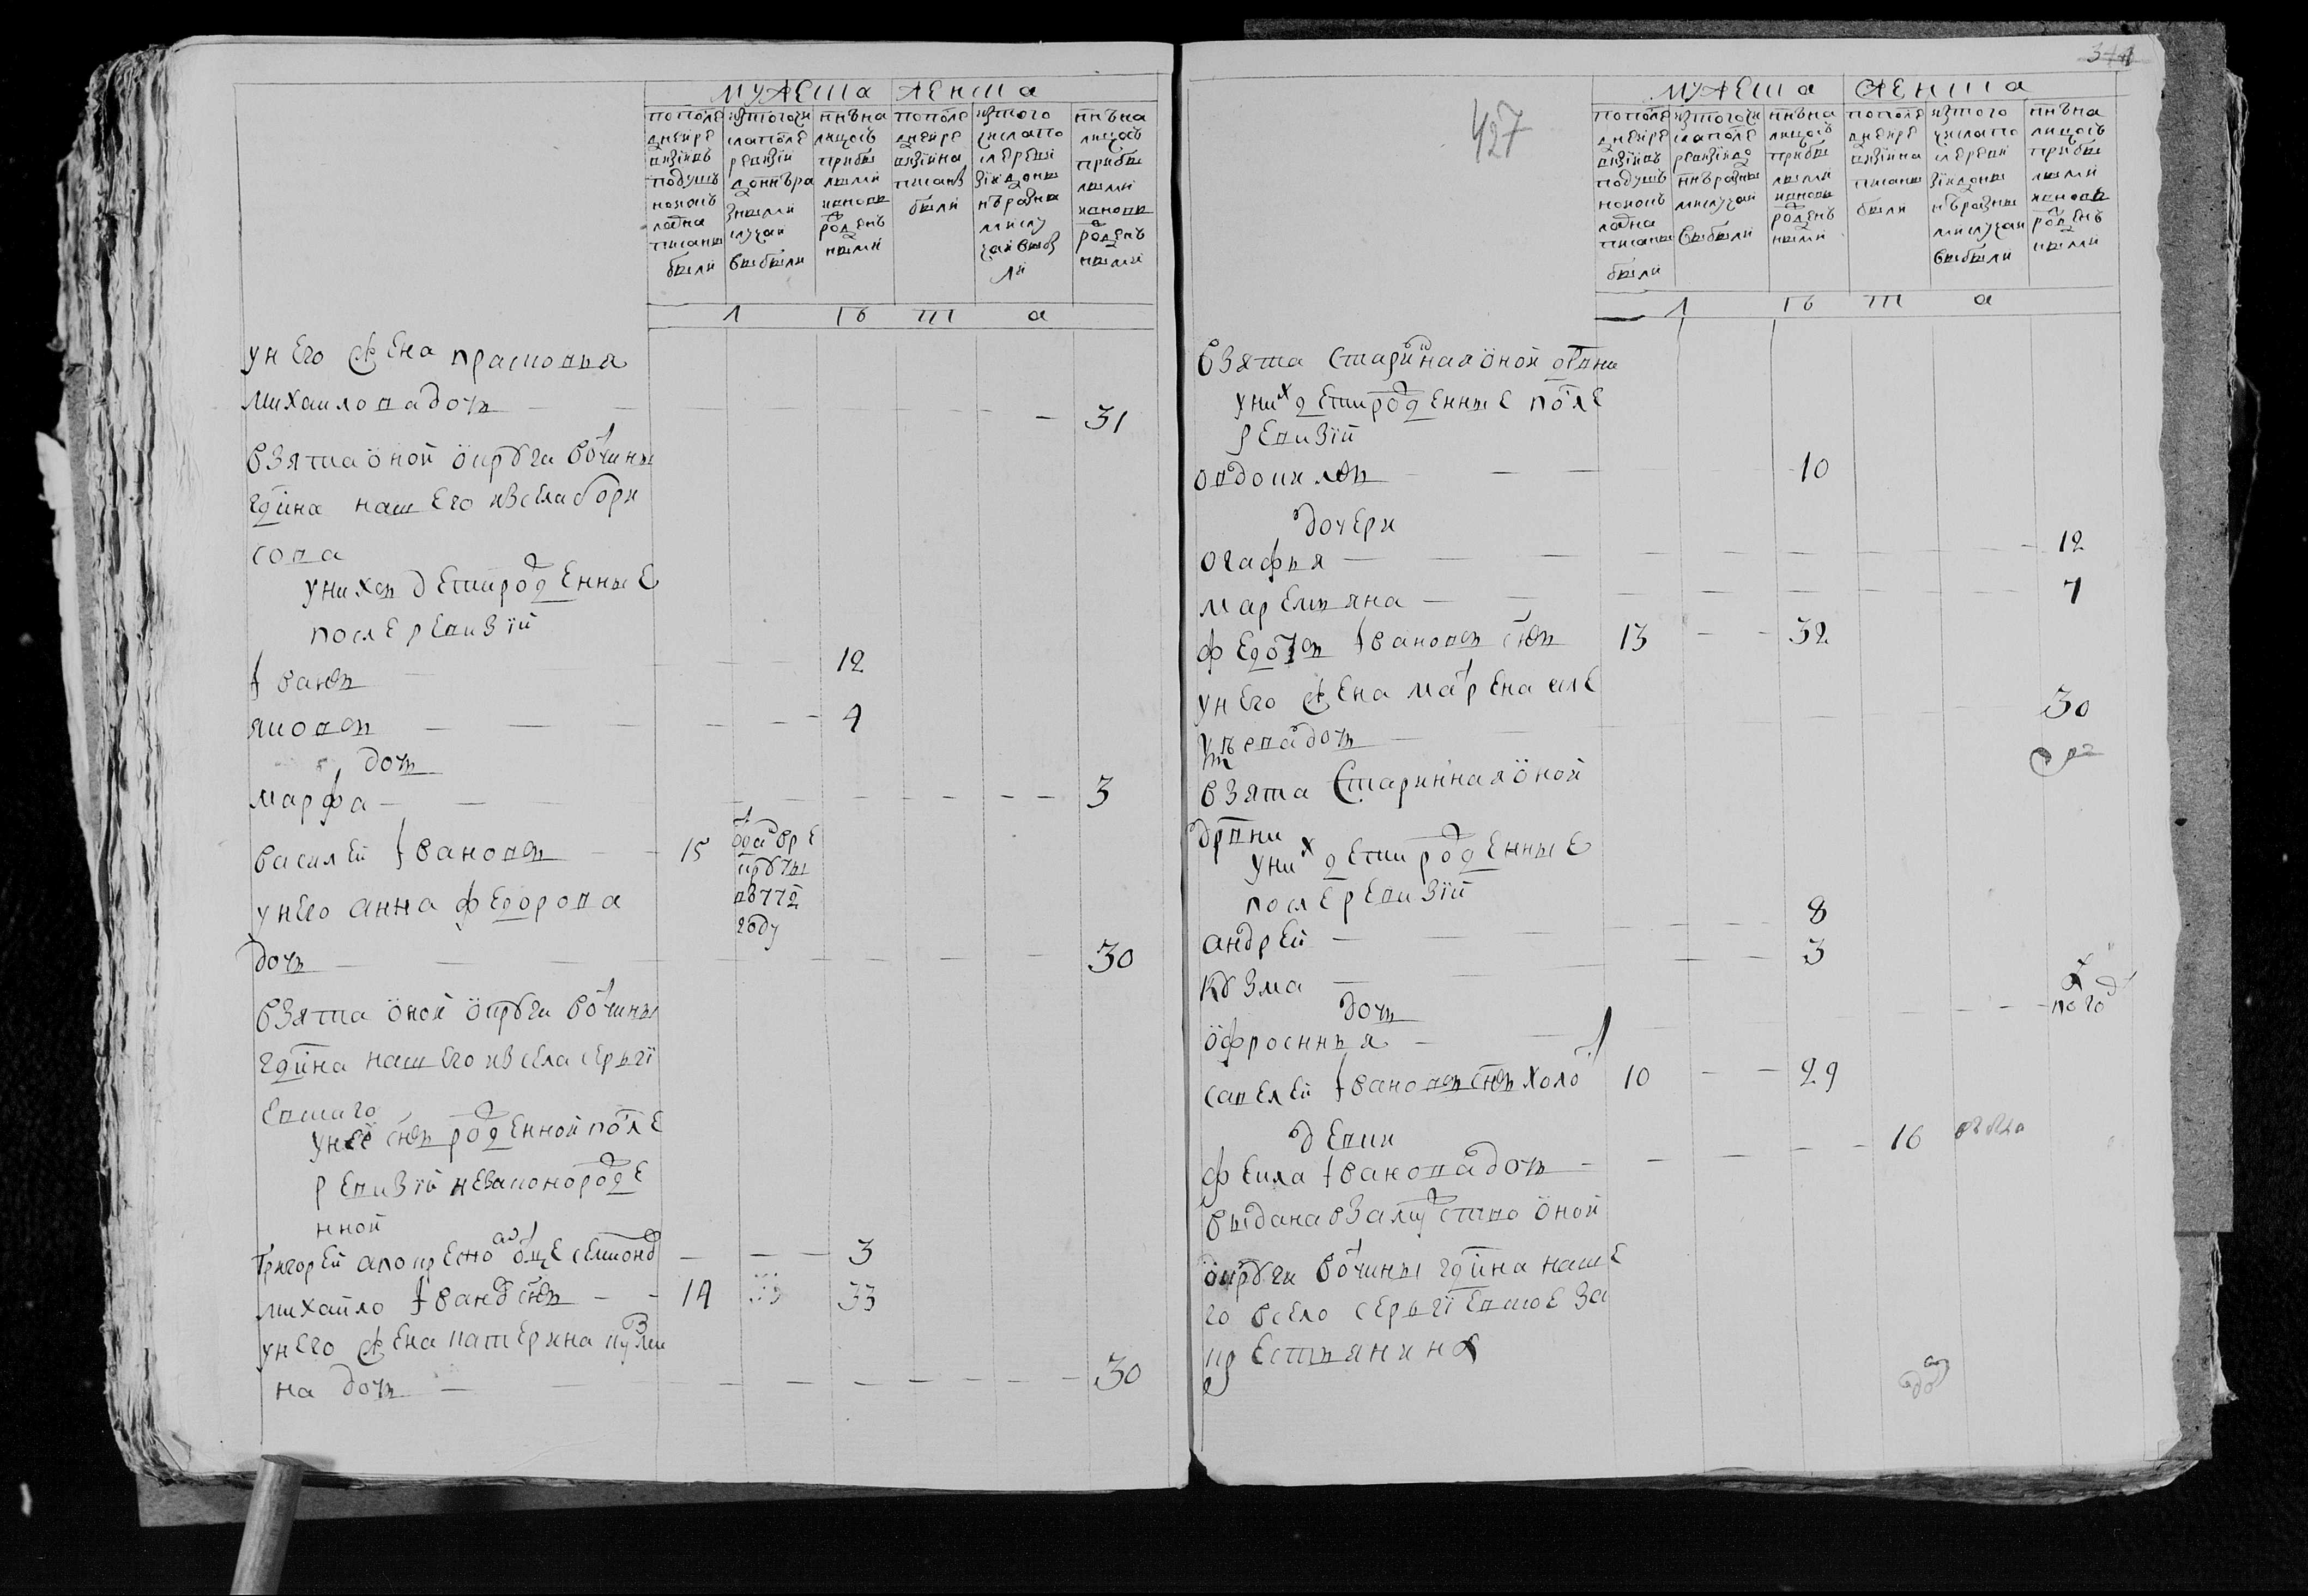 мужеска женска
по последней ревизии в подушном окладе написаны были
из того числа после ревизии до ныне разными случаи выбыли
ныне на лицо с прибылыми и вновь рожденными
по последней ревизии написаны были
из того числа после ревизии до ныне разными случаи выбыли
ныне на лицо с прибылыми и вновь рожденными
л ѣ т а
у него жена прасковья
михаилова дочь — 31
взята оной округи вотчины
гдина нашего из села бори
сова
у нихъ дети рожденные
после ревизiи
Iванъ — 12
яковъ — 4
дочь
марфа — 3
василей Iвановъ — 15
отдан в рекруты в 772 году
у него анна федорова
дочь — 30
взята оной округи вотчины
гдина нашего из села сергi
евскаго
у неѣ снъ рожденной после
ревизiи незаконорожде
нной
григорей — 3
михайло Iванов снъ — 14 33
у него жена катерина кузми
на дочь — 30
427
344
мужеска женска
по последней ревизии в подушном окладе написаны были
из того числа после ревизии до ныне разными случаи выбыли
ныне на лицо с прибылыми и вновь рожденными
по последней ревизии написаны были
из того числа после ревизии до ныне разными случаи выбыли
ныне на лицо с прибылыми и вновь рожденными
л ѣ т а
взята старинная оной дрвни
у них дети рожденные после
ревизiи
овдокимъ — 10
дочери
огафья — 12
маремьяна — 7
федотъ Iвановъ снъ 13 — 32
у него жена матрена
дочь — 30
взята старинная оной
дрвни
у них дети рожденные
после ревизiи
андрей — 8
кузма — 3
дочь
офросинья — по го
савелей Iвановъ снъ холо 10 — 29
фекла Iванова дочь — 16
выдана в замужство оной
округи вотчины гдина наше
го в село сергiевское за
крестьянина